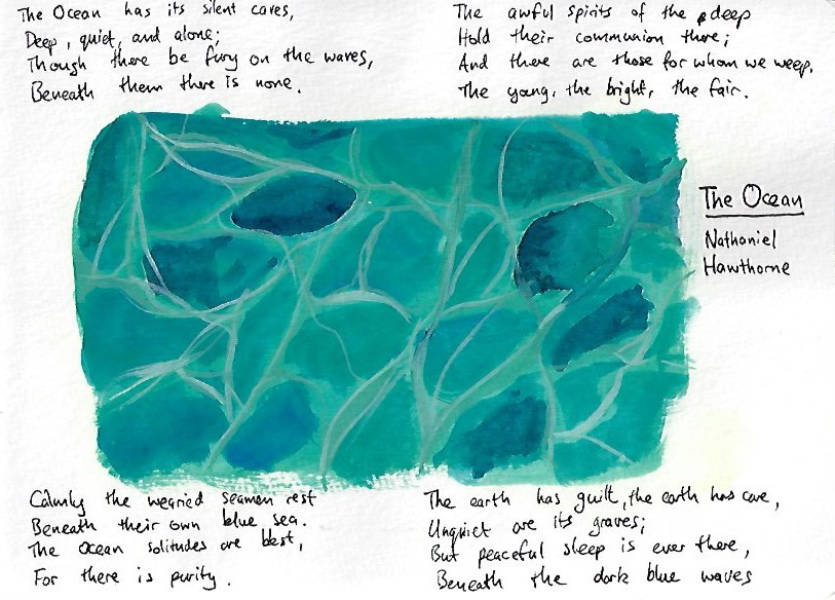 The Ocean has its silent caves,
Deep, quiet, and alone;
Though there be fury on the waves,
Beneath them there is none.
The awful spirits of the deep
Hold their communion there;
And there are those for whom we weep,
The young, the bright, the fair.
The Ocean
Nathaniel
Hawthorne
Calmly the wearied seamen rest
Beneath their own blue sea.
The Ocean solitudes are best,
For there is purity.
The earth has guilt, the earth has care,
Unquiet are its graves;
But peaceful sleep is ever there,
Beneath the dark blue waves